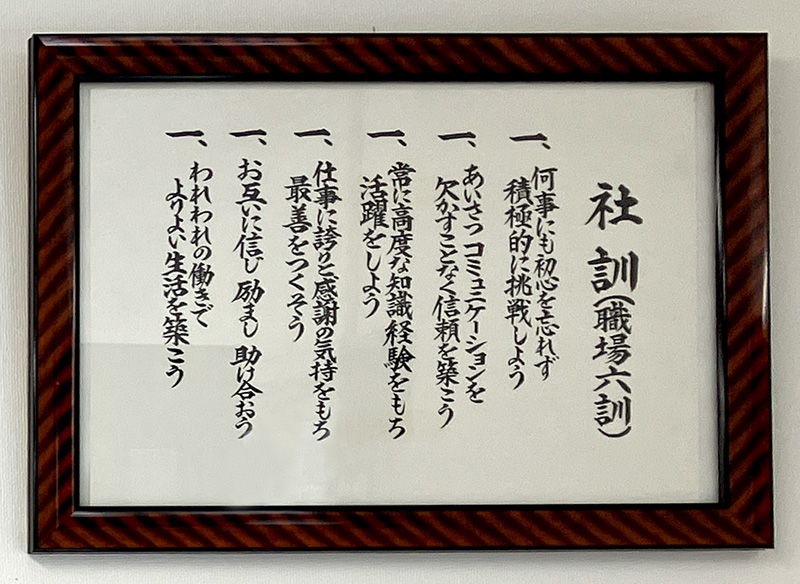 社訓(職場六訓)
一、何事にも初心を忘れず
積極的に挑戦しよう
一、あいさつコミュニケーションを
欠かすことなく信頼を築こう
一、常に高度な知識経験をもち
活躍をしよう
一、仕事に誇りと感謝の気持をもち
最善をつくそう
一、お互いに信じ 励まし 助け合おう
一、われわれの働きで
よりよい生活を築こう